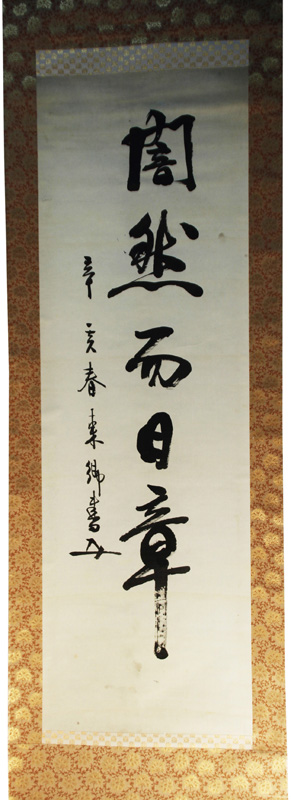 闇然而日章
辛亥春東郷書